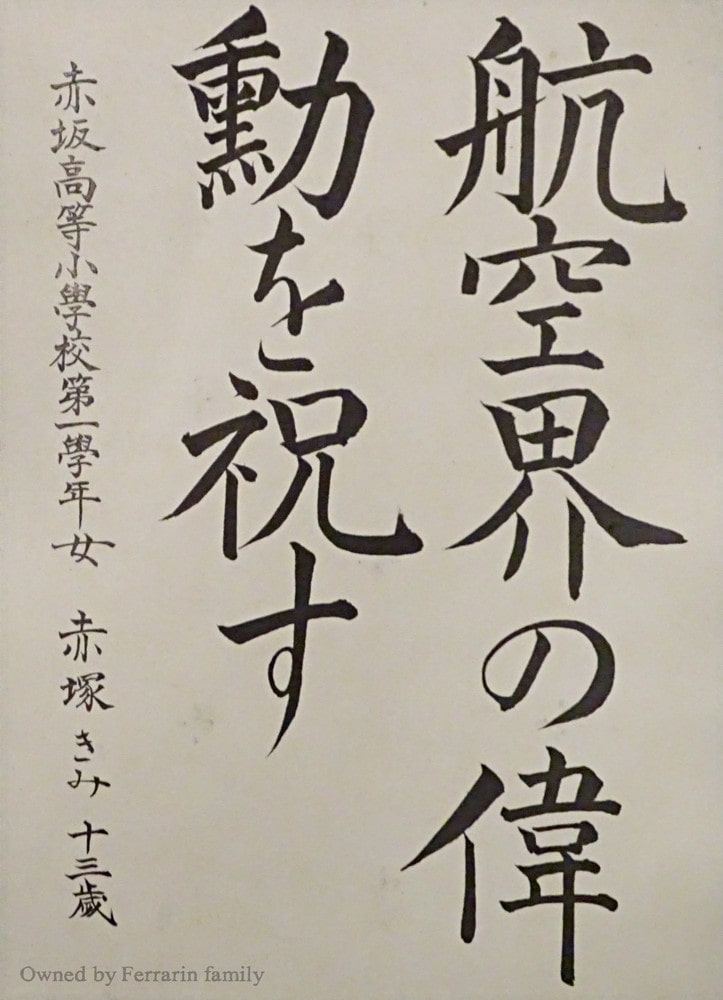 航空界の偉
勳を祝す
赤坂高等小學校第一學年女 赤塚きみ 十三歲
Owned by Ferrarin family